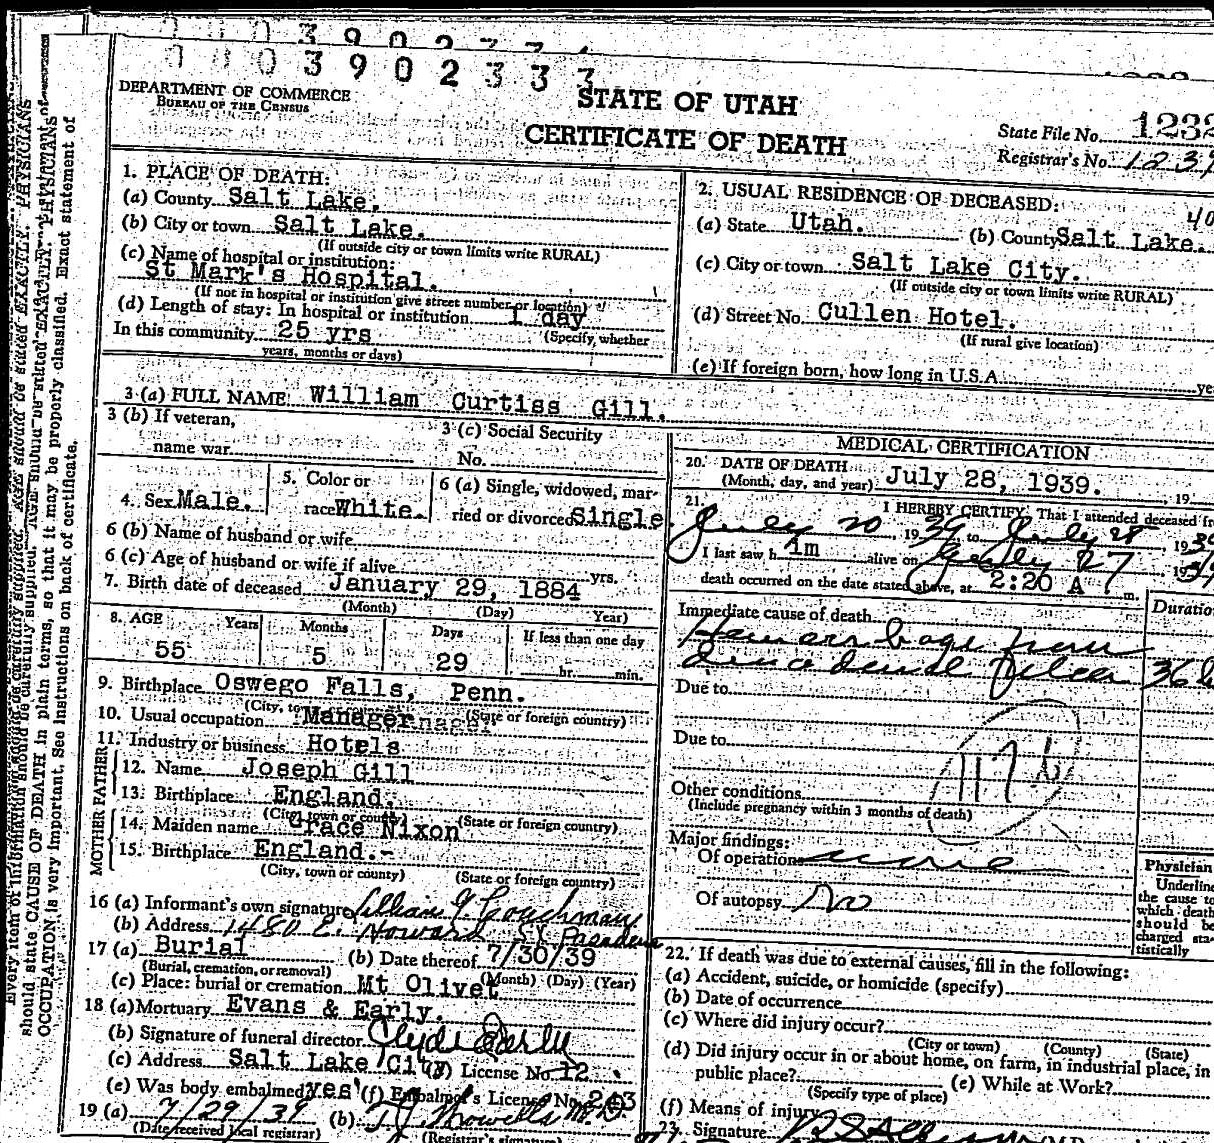 0390233
DEPARTMENT OF COMMERCE
BUREAU OF THE CENSUS
STATE OF UTAH
CERTIFICATE OF DEATH
State File No. 1232
Registrar's No. 123
1. PLACE OF DEATH:
(a) County Salt Lake.
(b) City or town Salt Lake.
(If outside city or town limits write RURAL)
(c) Name of hospital or institution:
St Mark's Hospital.
(If not in hospital or institution give street number or location)
(d) Length of stay: In hospital or institution 1 day
(Specify whether
In this community 25 yrs
years, months or days)
2. USUAL RESIDENCE OF DECEASED:
40
(a) State Utah. (b) County Salt Lake.
(c) City or town Salt Lake City.
(If outside city or town limits write RURAL)
(d) Street No. Cullen Hotel.
(If rural give location)
(e) If foreign born, how long in U.S.A. ye
3 (a) FULL NAME William Curtiss Gill.
3 (b) If veteran,
name war
3 (c) Social Security
No.
4. Sex Male.
5. Color or
race White.
6 (a) Single, widowed, mar-
ried or divorced Single.
6 (b) Name of husband or wife
6 (c) Age of husband or wife if alive yrs.
7. Birth date of deceased January 29, 1884
(Month) (Day) Year)
8. AGE Years Months Days If less than one day
55 5 29 hr. min.
9. Birthplace Oswego Falls, Penn.
(State or foreign country)
10. Usual occupation Manager
11. Industry or business Hotels
FATHER
12. Name Joseph Gill
13. Birthplace England.
(City, town or county) (State or foreign country)
MOTHER
14. Maiden name Grace Nixon
15. Birthplace England.-
(City, town or county) (State or foreign country)
16 (a) Informant's own signature Lillian G. Couchman
(b) Address 1480 E. Howard St Pasadena
17 (a) Burial (b) Date thereof 7/30/39
(Burial, cremation, or removal) (Month) (Day) (Year)
(c) Place: burial or cremation Mt Olivet
18 (a) Mortuary Evans & Early.
(b) Signature of funeral director Clyde Early
(c) Address Salt Lake City (d) License No. 12
(e) Was body embalmed yes (f) Embalmer's License No. 243
19 (a) 7/29/39 (b)
(Date received local registrar) (Registrar's signature)
MEDICAL CERTIFICATION
20. DATE OF DEATH
(Month, day, and year) July 28, 1939. 19
21. I HEREBY CERTIFY, That I attended deceased fr
July 20 1939 to July 28 1939
I last saw h im alive on July 27 1939
death occurred on the date stated above, at 2:20 A m.
Immediate cause of death Duration
Hemorrhage from
duodenal ulcer 36
Due to
Due to
117 b
Other conditions
(Include pregnancy within 3 months of death)
Major findings:
Of operation none
Of autopsy No
Physician
Underline
the cause to
which death
should be
charged sta-
tistically
22. If death was due to external causes, fill in the following:
(a) Accident, suicide, or homicide (specify)
(b) Date of occurrence
(c) Where did injury occur?
(City or town) (County) (State)
(d) Did injury occur in or about home, on farm, in industrial place, in
public place? (e) While at Work?
(Specify type of place)
(f) Means of injury
23. Signature
should state CAUSE OF DEATH in plain terms, so that it may be properly classified. Exact statement of
OCCUPATION is very important. See Instructions on back of certificate.